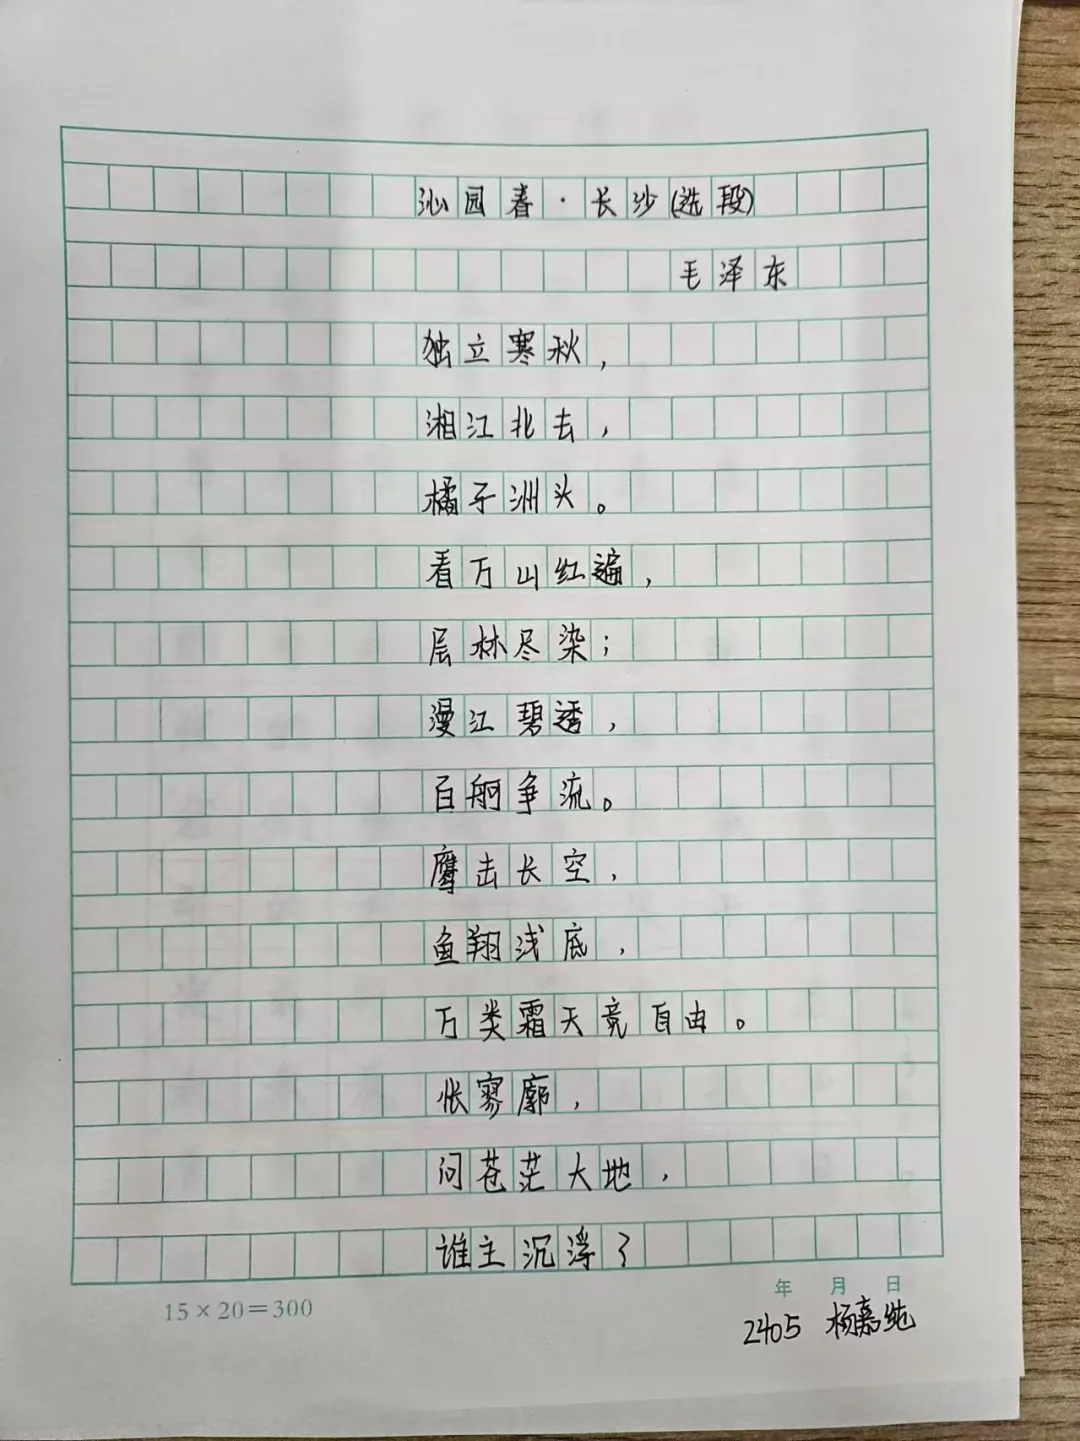 沁园春·长沙(选段)
毛泽东
独立寒秋，
湘江北去，
橘子洲头。
看万山红遍，
层林尽染；
漫江碧透，
百舸争流。
鹰击长空，
鱼翔浅底，
万类霜天竞自由。
怅寥廓，
问苍茫大地，
谁主沉浮？
15×20=300
年 月 日
2405 杨嘉纯